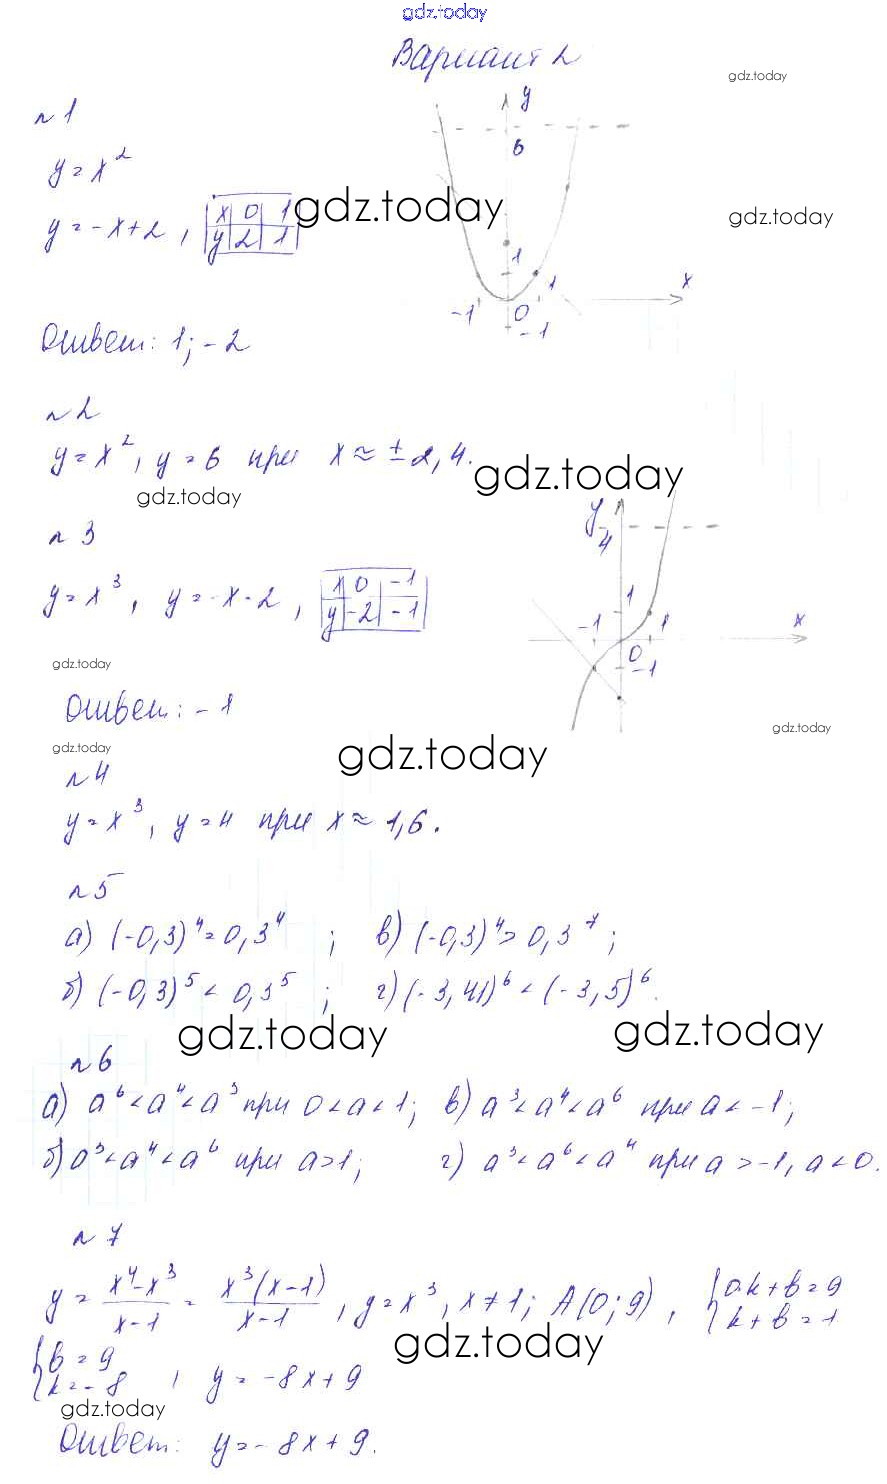 gdz.today
Вариант 2
gdz.today
n 1
y
6
y = x²
y = -x+2, x 0 1
y 2 1
gdz.today
gdz.today
1
-1 0 1 x
-1
Ответ: 1; -2
n 2
y = x², y = 6 при x ≈ ± 2,4.
gdz.today
gdz.today
n 3
y
4
y = x³, y = -x-2, x 0 -1
y -2 -1
1
-1 0 1 x
-1
gdz.today
Ответ: -1
gdz.today
gdz.today
gdz.today
n 4
y = x³, y = 4 при x ≈ 1,6.
n 5
а) (-0,3)⁴ = 0,3⁴ ; в) (-0,3)⁴ > 0,3⁷ ;
б) (-0,3)⁵ < 0,3⁵ ; г) (-3,41)⁶ < (-3,5)⁶.
gdz.today
gdz.today
n 6
а) a⁶ < a⁴ < a³ при 0 < a < 1; в) a³ < a⁴ < a⁶ при a < -1;
б) a³ < a⁴ < a⁶ при a > 1; г) a³ < a⁶ < a⁴ при a > -1, a < 0.
n 7
y = x⁴-x³ / x-1 = x³(x-1) / x-1, y = x³, x ≠ 1; A(0; 9), { 0·k + b = 9
k + b = 1
gdz.today
{ b = 9
k = -8 , y = -8x + 9
gdz.today
Ответ: y = -8x + 9.